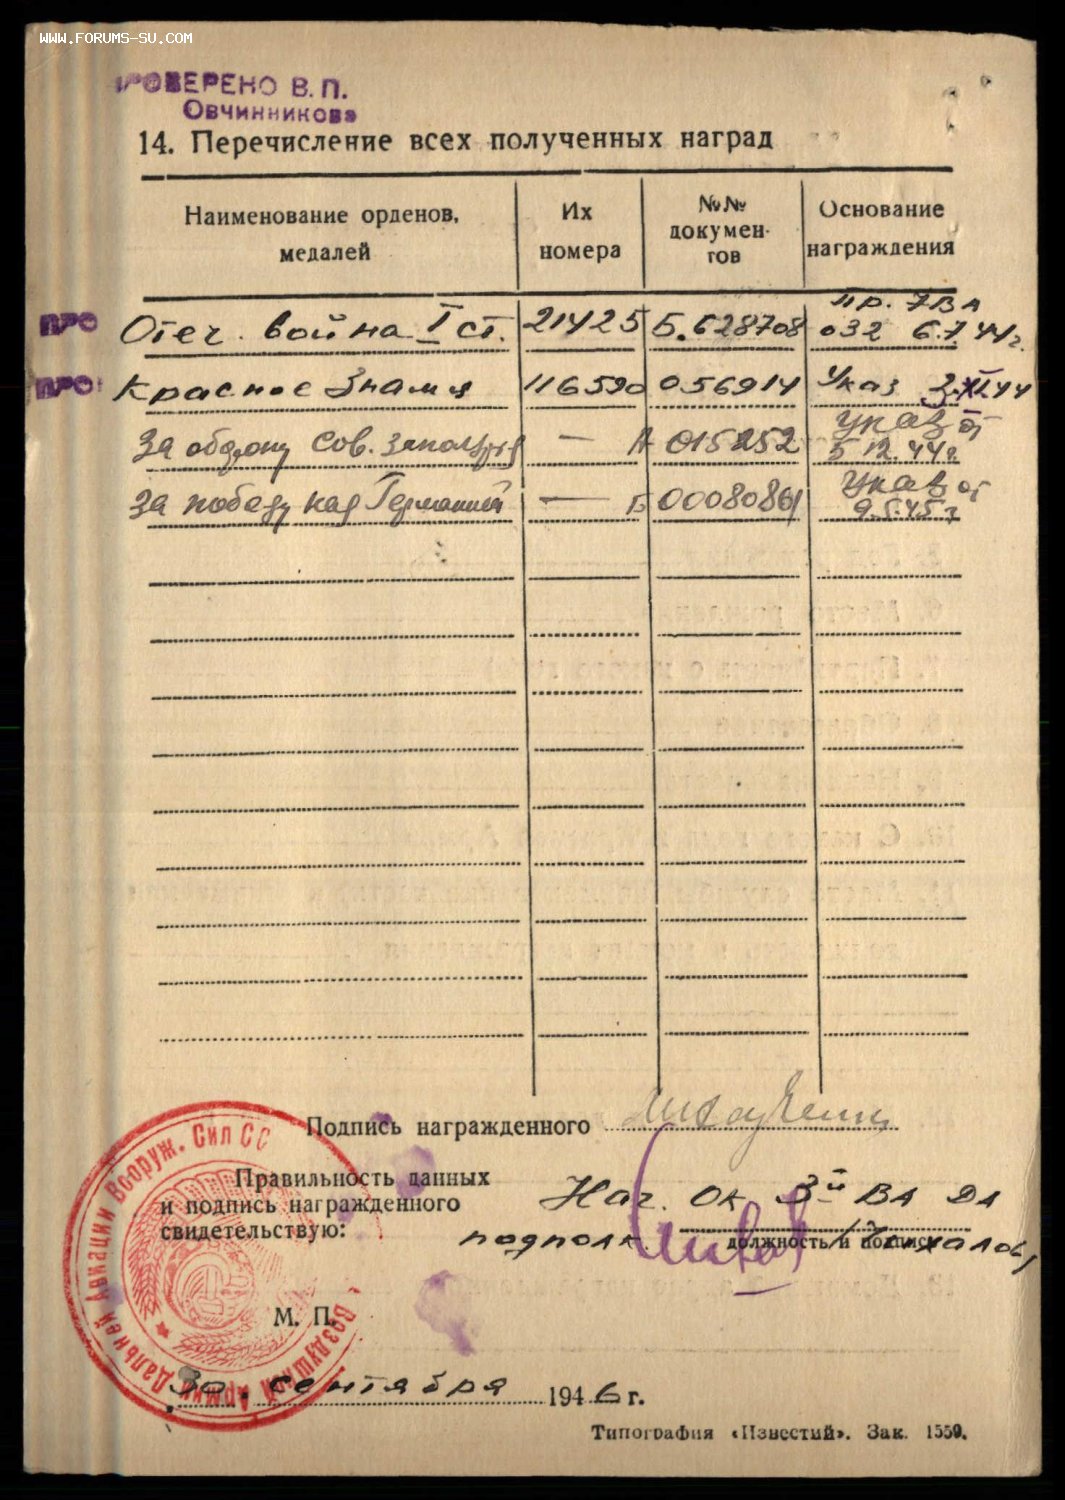 WWW.FORUMS-SU.COM
ПРОВЕРЕНО В.П.
Овчинникова
14. Перечисление всех полученных наград
Наименование орденов, медалей
Их номера
№№ докумен-тов
Основание награждения
ПРО Отеч. война I ст. 21425 Б.628708 пр. 7ВА 032 6.7.44г.
ПРО Красное Знамя 116590 056914 Указ 3.XI.44
За оборону Сов. Заполярья — А 015252 Указ от 5.12.44г.
За победу над Германией — Б 0008086 Указ от 9.5.45г
Подпись награжденного
Правильность данных
и подпись награжденного
свидетельствую:
Нач. ОК 3й ВА ДА
подполк.
должность и подпись
М. П.
Воздушной Армии Дальней Авиации Вооруж. Сил СС
30. сентября 1946 г.
Типография «Известий». Зак. 1559.